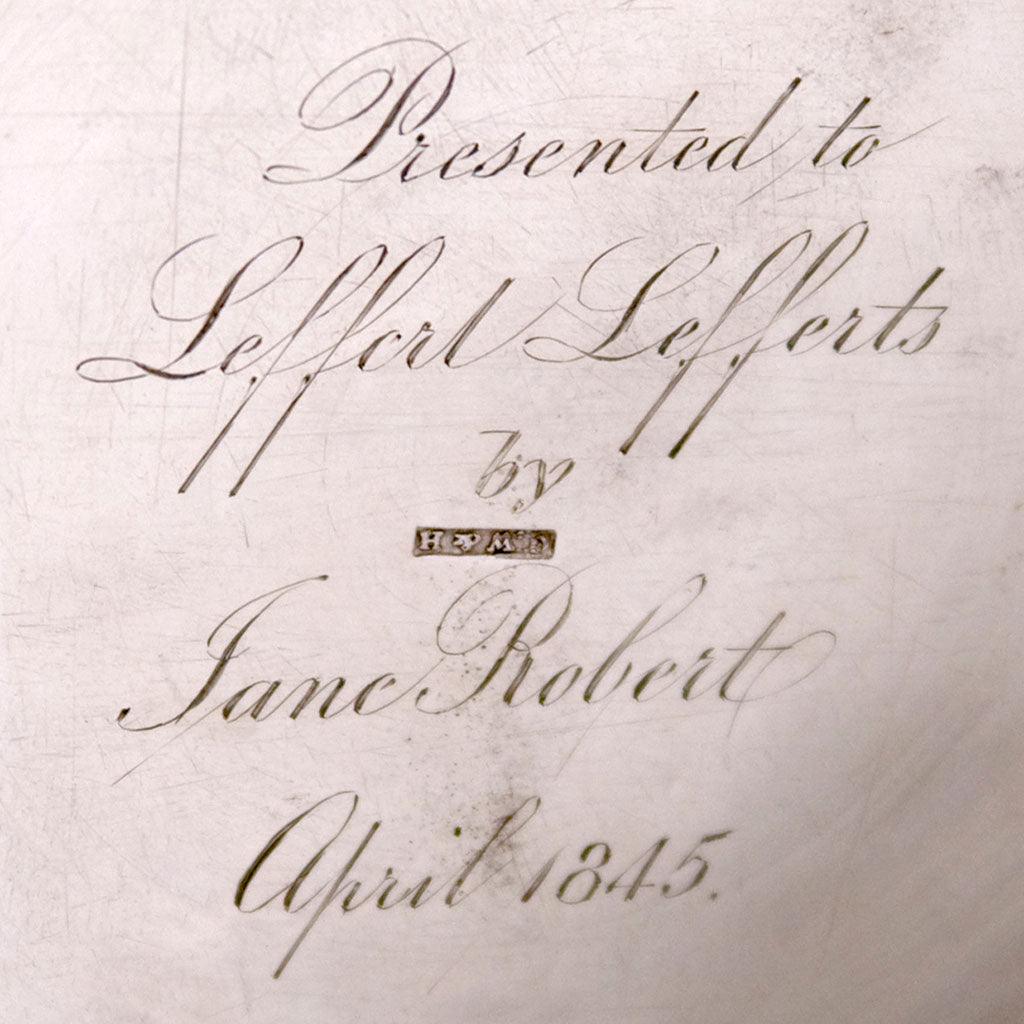 Presented to
Leffert Lefferts
by
G.W & H
Jane Robert
April 1845.